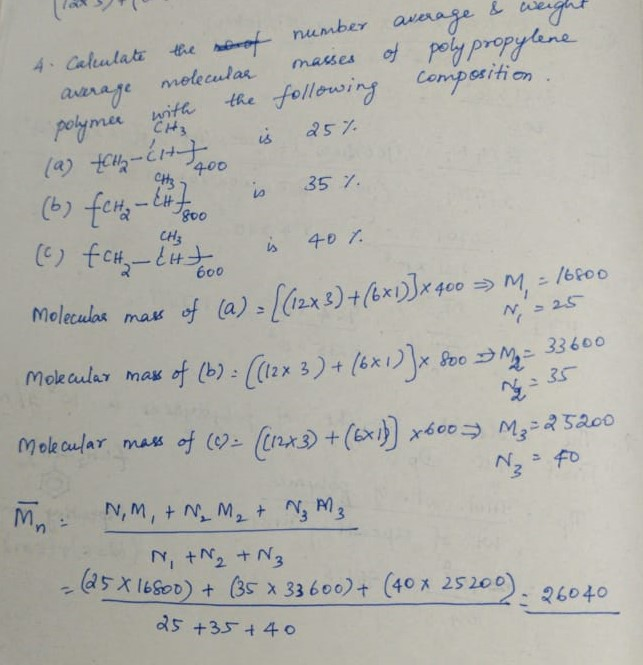 4. Calculate the number average & weight
average molecular masses of polypropylene
polymer with the following composition.
CH3
(a) [CH2-CH]400 is 25%
CH3
(b) [CH2-CH]800 is 35%.
CH3
(c) [CH2-CH]600 is 40%
Molecular mass of (a) = [(12x3)+(6x1)]x400 ⇒ M1 = 16800
N1 = 25
Molecular mass of (b) = [(12x3)+(6x1)]x 800 ⇒ M2 = 33600
N2 = 35
Molecular mass of (c) = [(12x3)+(6x1)] x600 ⇒ M3 = 25200
N3 = 40
M̅n = N1M1 + N2M2 + N3M3
N1 + N2 + N3
= (25 x 16800) + (35 x 33600) + (40 x 25200) = 26040
25 + 35 + 40